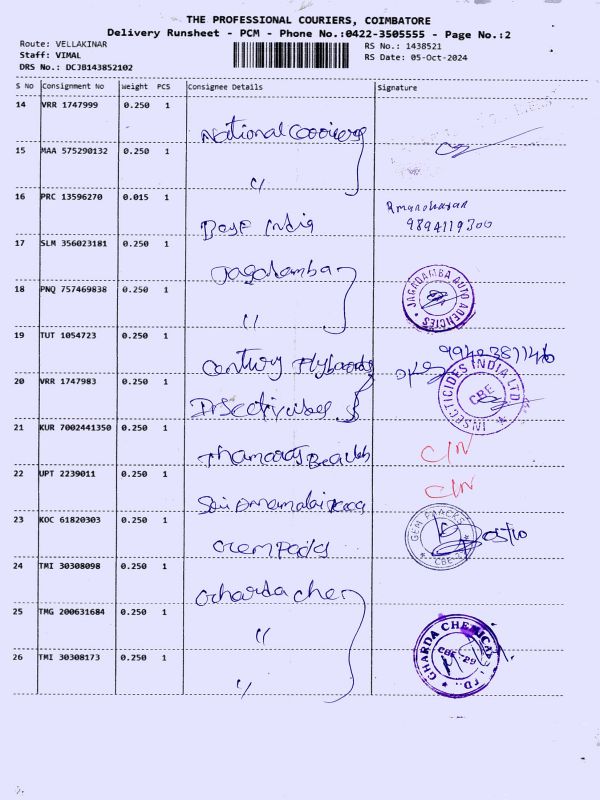 THE PROFESSIONAL COURIERS, COIMBATORE
Delivery Runsheet - PCM - Phone No.:0422-3505555 - Page No.:2
Route: VELLAKINAR
Staff: VIMAL
DRS No.: DCJB143852102
RS No.: 1438521
RS Date: 05-Oct-2024
S No Consignment No Weight PCS Consignee Details Signature
14 VRR 1747999 0.250 1 National
15 MAA 575290132 0.250 1 "
16 PRC 13596270 0.015 1 India
9894119300
17 SLM 356023181 0.250 1 Jagadamba
18 PNQ 757469838 0.250 1 "
JAGADAMBA AUTO AGENCIES
19 TUT 1054723 0.250 1 Century Plyboards
20 VRR 1747983 0.250 1
INSECTICIDES INDIA LTD. CBE
21 KUR 7002441350 0.250 1
22 UPT 2239011 0.250 1
23 KOC 61820303 0.250 1
24 TMI 30308098 0.250 1 Gharda chem
25 TMG 200631684 0.250 1 "
GHARDA CHEMICAL LTD. CBE-29
26 TMI 30308173 0.250 1 "